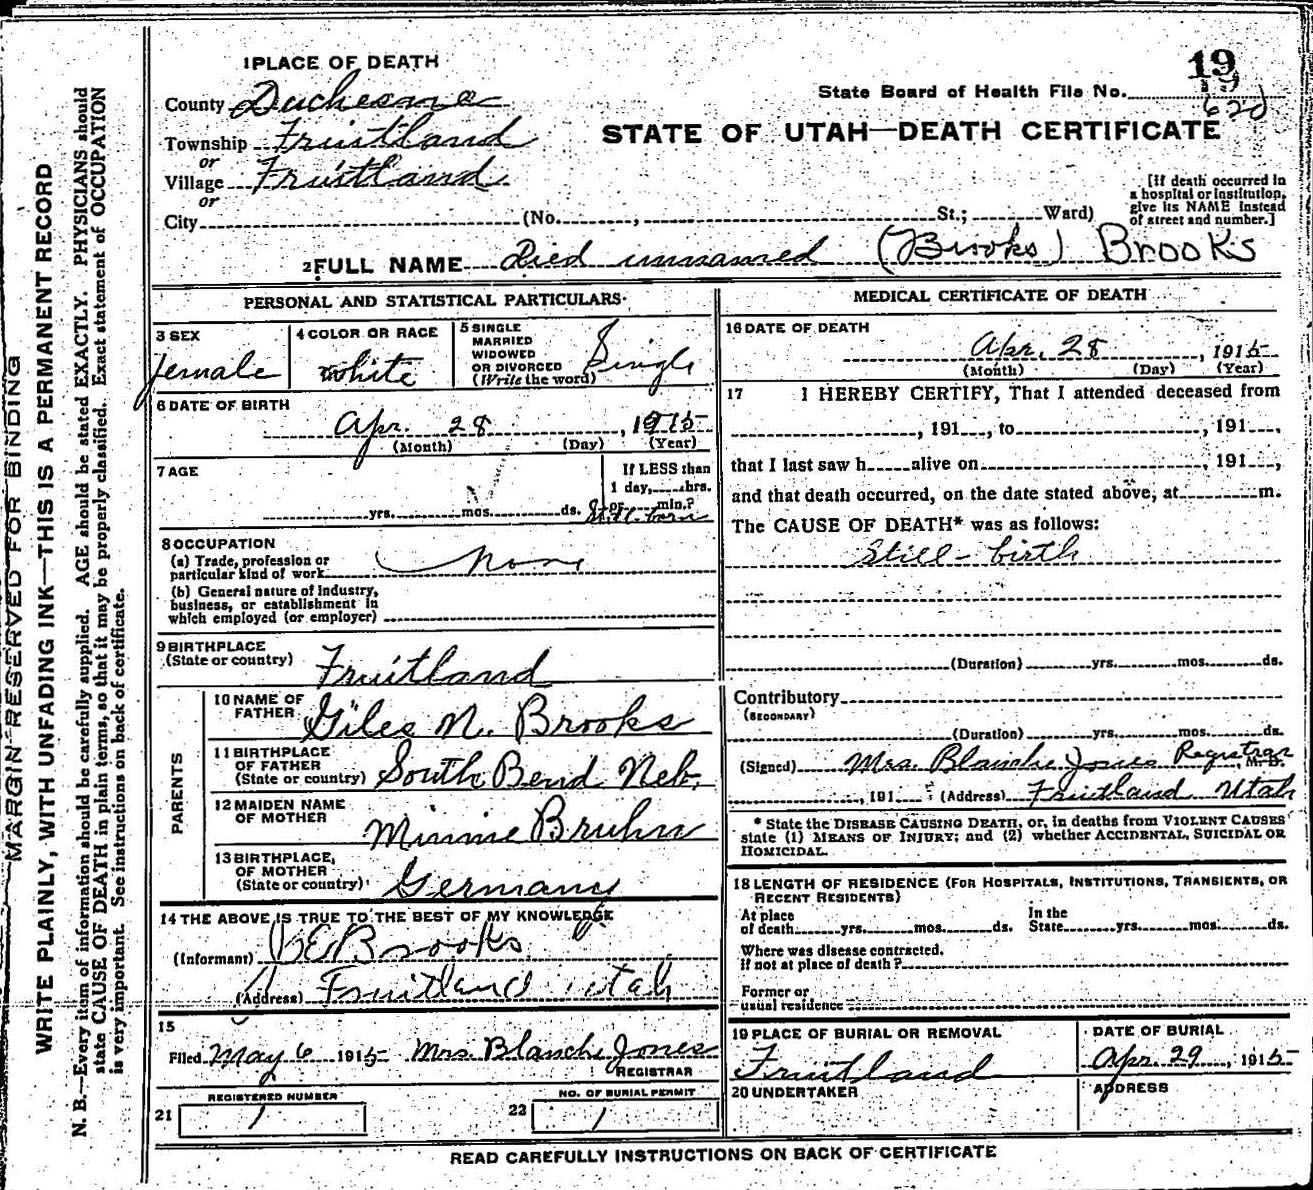 MARGIN RESERVED FOR BINDING
WRITE PLAINLY, WITH UNFADING INK—THIS IS A PERMANENT RECORD
N. B.—Every item of information should be carefully supplied. AGE should be stated EXACTLY. PHYSICIANS should
state CAUSE OF DEATH in plain terms, so that it may be properly classified. Exact statement of OCCUPATION
is very important. See instructions on back of certificate.
1 PLACE OF DEATH
19
County Duchesne
State Board of Health File No.
Township Fruitland
STATE OF UTAH—DEATH CERTIFICATE
or
Village Fruitland
or
City (No. , St.; Ward)
[If death occurred in
a hospital or institution,
give its NAME instead
of street and number.]
2 FULL NAME Died unnamed (Brooks) Brooks
PERSONAL AND STATISTICAL PARTICULARS
3 SEX
female
4 COLOR OR RACE
white
5 SINGLE
MARRIED
WIDOWED
OR DIVORCED
(Write the word)
Single
6 DATE OF BIRTH
Apr. 28, 1915
(Month) (Day) (Year)
7 AGE
If LESS than
1 day, hrs.
or min.?
yrs. mos. ds. Still born
8 OCCUPATION
(a) Trade, profession or
particular kind of work None
(b) General nature of industry,
business, or establishment in
which employed (or employer)
9 BIRTHPLACE
(State or country) Fruitland
PARENTS
10 NAME OF
FATHER Giles N. Brooks
11 BIRTHPLACE
OF FATHER
(State or country) South Bend Neb.
12 MAIDEN NAME
OF MOTHER Minnie Bruhn
13 BIRTHPLACE,
OF MOTHER
(State or country) Germany
14 THE ABOVE IS TRUE TO THE BEST OF MY KNOWLEDGE
(Informant) Brooks
(Address) Fruitland Utah
15
Filed May 6 1915 Mrs. Blanche Jones
REGISTRAR
REGISTERED NUMBER
21 1
NO. OF BURIAL PERMIT
22 1
MEDICAL CERTIFICATE OF DEATH
16 DATE OF DEATH
Apr. 28, 1915
(Month) (Day) (Year)
17 I HEREBY CERTIFY, That I attended deceased from
, 191 , to , 191 ,
that I last saw h alive on , 191 ,
and that death occurred, on the date stated above, at m.
The CAUSE OF DEATH* was as follows:
Still-birth
(Duration) yrs. mos. ds.
Contributory
(SECONDARY)
(Duration) yrs. mos. ds.
(Signed) Mrs. Blanche Jones Registrar, M. D.
, 191 (Address) Fruitland Utah
* State the DISEASE CAUSING DEATH, or, in deaths from VIOLENT CAUSES
state (1) MEANS OF INJURY; and (2) whether ACCIDENTAL, SUICIDAL OR
HOMICIDAL.
18 LENGTH OF RESIDENCE (FOR HOSPITALS, INSTITUTIONS, TRANSIENTS, OR
RECENT RESIDENTS)
At place
of death yrs. mos. ds.
In the
State yrs. mos. ds.
Where was disease contracted.
if not at place of death?
Former or
usual residence
19 PLACE OF BURIAL OR REMOVAL
Fruitland
DATE OF BURIAL
Apr. 29, 1915
20 UNDERTAKER
ADDRESS
READ CAREFULLY INSTRUCTIONS ON BACK OF CERTIFICATE